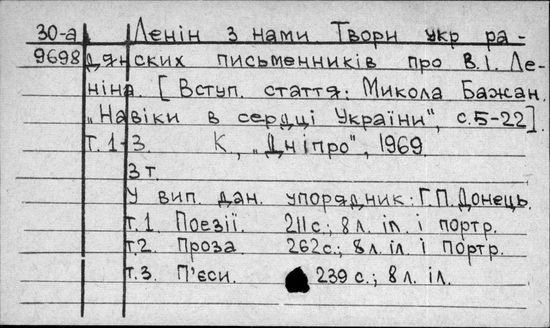 30-а Ленін з нами Твори укр ра-
9698 дянских письменників про В.І. Ле-
ніна. [Вступ. стаття: Микола Бажан.
„Навіки в сердці України", с.5-22].
Т. 1-3. К, „Дніпро", 1969.
3 т.
У вип. дан. упорядник: Г.П. Донець.
т.1. Поезії. 211с.; 8 л. іл. і портр.
т.2. Проза. 262с.; 8 л. іл. і портр.
т.3. П'єси. 239 с.; 8 л. іл.